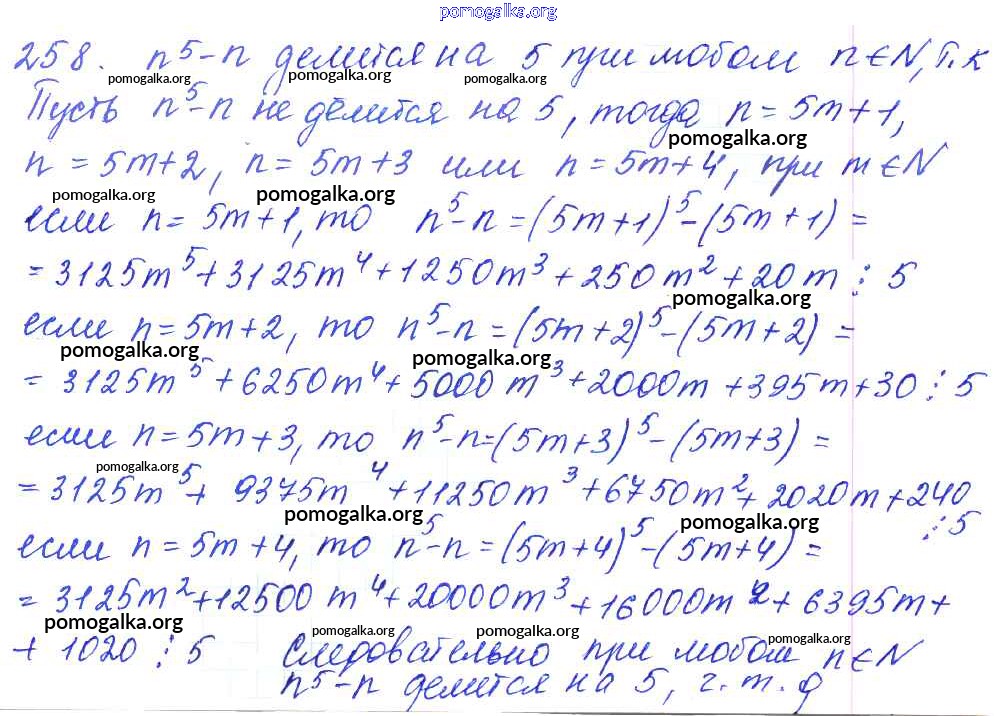 pomogalka.org
258. n⁵-n делится на 5 при любом n∈N, т.к
pomogalka.org pomogalka.org pomogalka.org
Пусть n⁵-n не делится на 5, тогда n=5m+1,
pomogalka.org
n=5m+2, n=5m+3 или n=5m+4, при m∈N
pomogalka.org pomogalka.org
если n=5m+1, то n⁵-n=(5m+1)⁵-(5m+1)=
=3125m⁵+3125m⁴+1250m³+250m²+20m ⋮ 5
pomogalka.org
если n=5m+2, то n⁵-n=(5m+2)⁵-(5m+2)=
pomogalka.org pomogalka.org
=3125m⁵+6250m⁴+5000m³+2000m+395m+30 ⋮ 5
если n=5m+3, то n⁵-n=(5m+3)⁵-(5m+3)=
pomogalka.org
=3125m⁵+9375m⁴+11250m³+6750m²+2020m+240
pomogalka.org pomogalka.org
⋮ 5
если n=5m+4, то n⁵-n=(5m+4)⁵-(5m+4)=
=3125m²+12500m⁴+20000m³+16000m²+6395m+
pomogalka.org pomogalka.org pomogalka.org pomogalka.org
+1020 ⋮ 5 Следовательно при любом n∈N
n⁵-n делится на 5, ч.т.д